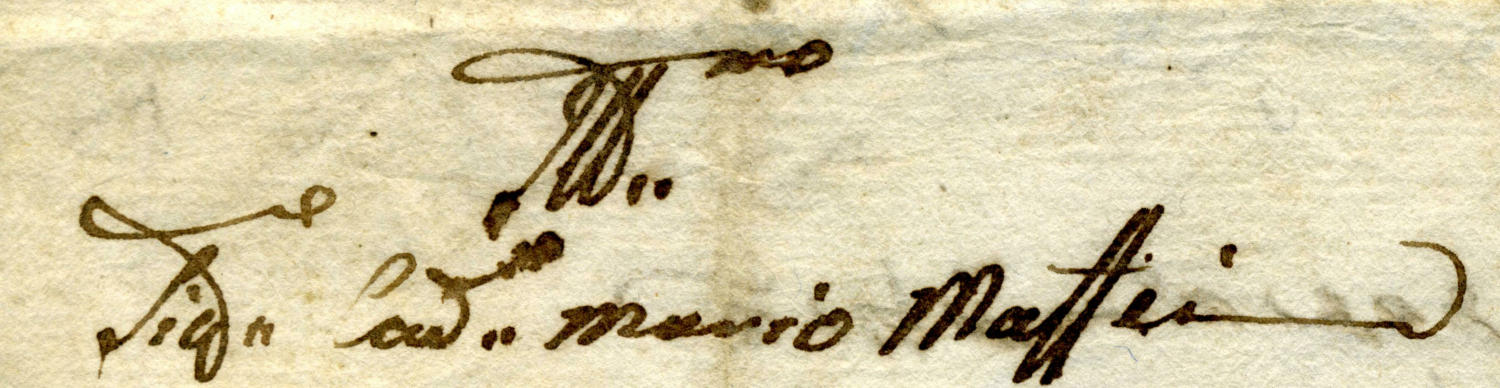 Ill.mo
Sig.re Cav.re Mario Maffei